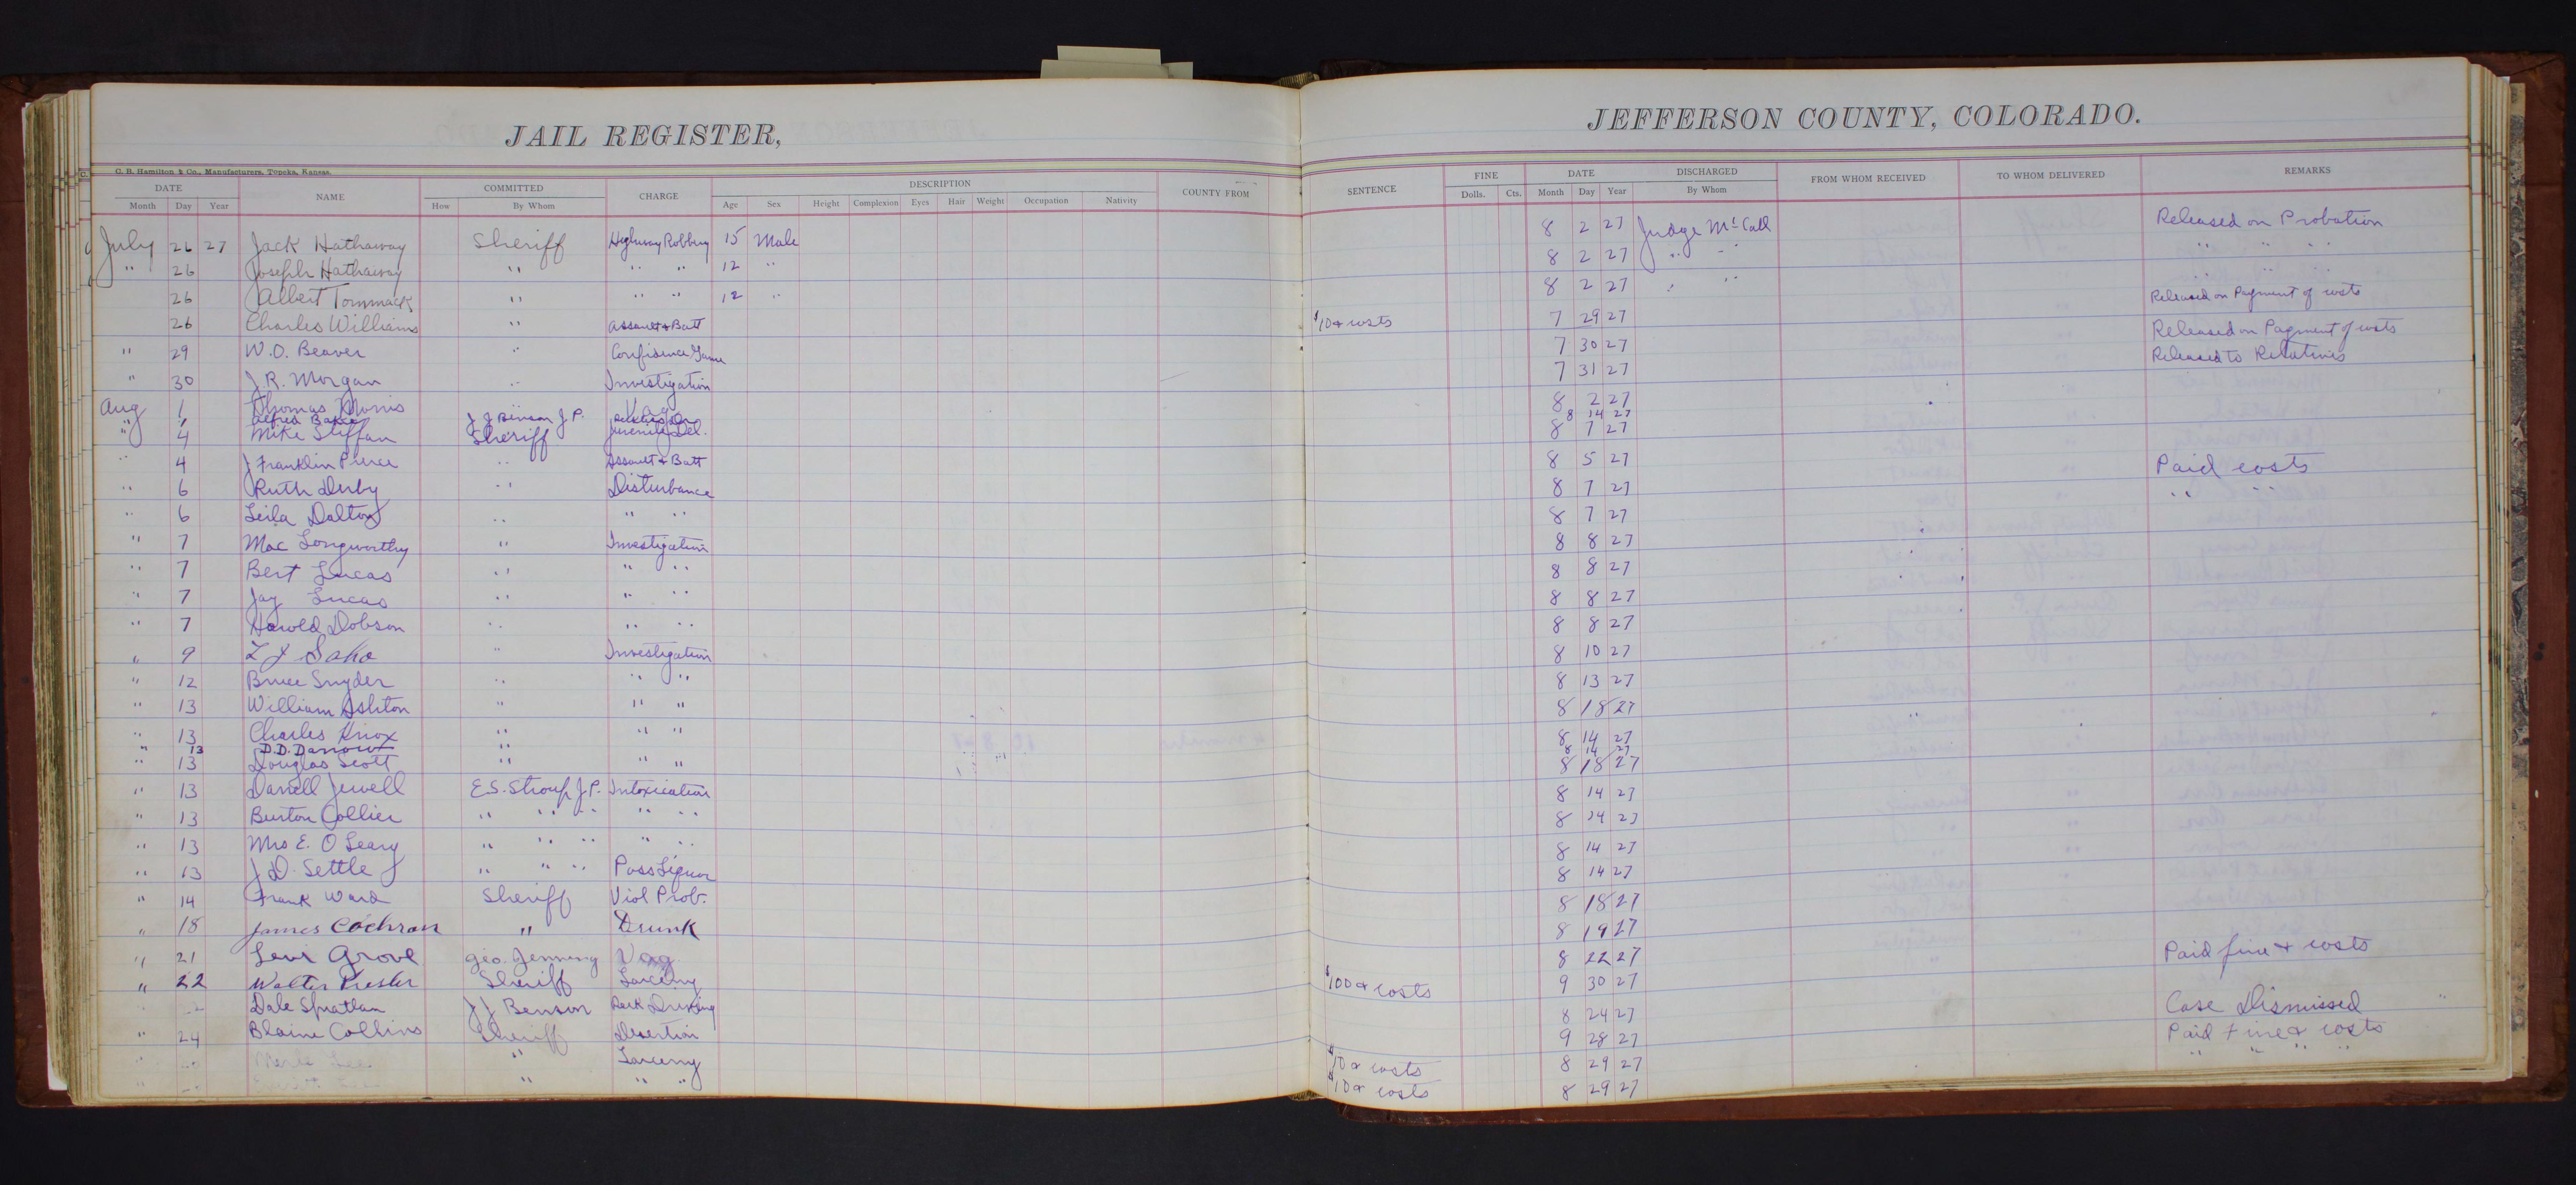 JAIL REGISTER,
C. B. Hamilton & Co., Manufacturers, Topeka, Kansas.
DATE NAME COMMITTED CHARGE DESCRIPTION COUNTY FROM
Month Day Year How By Whom Age Sex Height Complexion Eyes Hair Weight Occupation Nativity
July 26 27 Jack Hathaway Sheriff Highway Robbery 15 Male
" 26 Joseph Hathaway " " " 12 "
26 Albert Tommack " " " 12 "
26 Charles Williams " Assault & Batt
" 29 W.O. Beaver " Confidence Game
" 30 J.R. Morgan " Investigation
Aug 1 Thomas Morris " Vag
" Alfred J J Benson J.P.
" 4 Mike Steffan Sheriff Juvenile Del.
" 4 J Franklin Pierce " Assault & Batt
" 6 Ruth Derby " Disturbance
" 6 Leila Dalton " " "
" 7 Mac Longworthy " Investigation
" 7 Bert Lucas " " "
" 7 Jay Lucas " " "
" 7 Harold Dobson " " "
" 9 L J Saho " Investigation
" 12 Bruce Snyder " " "
" 13 William Ashton " " "
" 13 Charles Knox " " "
" 13 D.D. Darrow "
" 13 Douglas Scott " " "
" 13 Darrell Jewell E.S. Stroup J.P. Intoxication
" 13 Burton Collier " " " " "
" 13 Mrs E. O Leary " " " " "
" 13 J.D. Settle " " " Poss Liquor
" 14 Frank Ward Sheriff Viol Prob.
" 18 James Cochran " Drunk
" 21 Levi Grove Geo. Jenning Vag
" 22 Walter Sheriff Larceny
" Dale Spratlan J J Benson Reck Driving
" 24 Blaine Collins Sheriff Desertion
" " Larceny
" " " "
JEFFERSON COUNTY, COLORADO.
SENTENCE FINE DATE DISCHARGED FROM WHOM RECEIVED TO WHOM DELIVERED REMARKS
Dolls. Cts. Month Day Year By Whom
8 2 27 Judge McCall Released on Probation
8 2 27 " " " " "
8 2 27 " " " " "
$10 & costs 7 29 27 Released on Payment of costs
7 30 27 Released on Payment of costs
7 31 27 Released to Relatives
8 2 27
8 14 27
8 7 27
8 5 27 Paid costs
8 7 27 " "
8 7 27
8 8 27
8 8 27
8 8 27
8 8 27
8 10 27
8 13 27
8 18 27
8 14 27
8 14 27
8 18 27
8 14 27
8 14 27
8 14 27
8 14 27
8 18 27
8 19 27
8 22 27 Paid fine & costs
$100 & costs 9 30 27
8 24 27 Case Dismissed
9 28 27 Paid Fine & costs
$10 & costs 8 29 27 " " " "
$10 & costs 8 29 27